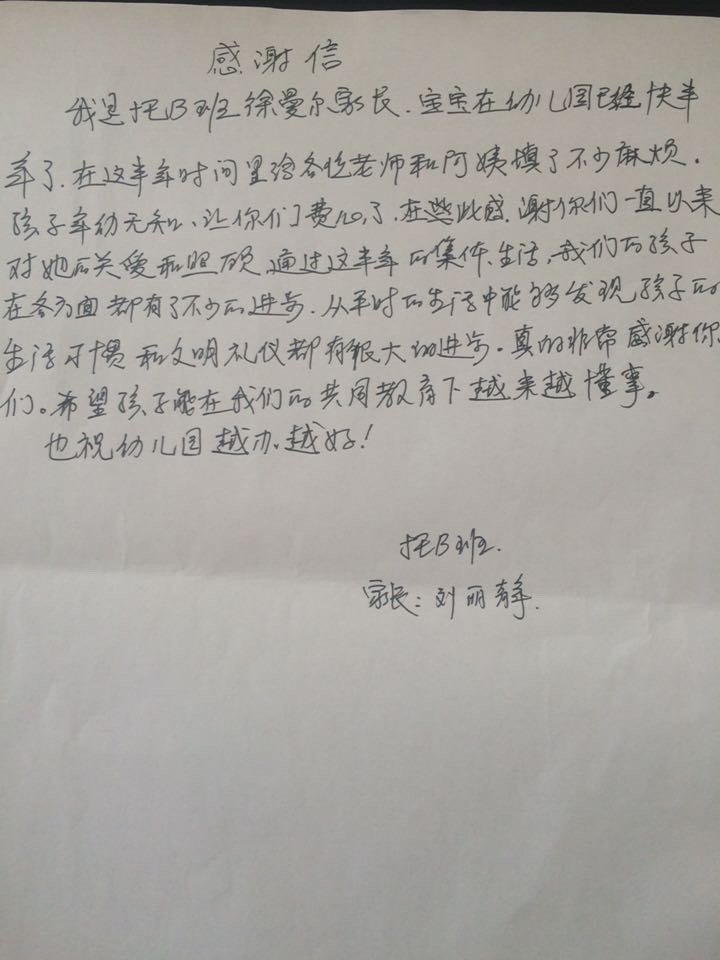 感谢信
我是托B班徐曼尔家长.宝宝在幼儿园已经快半
年了.在这半年时间里给各位老师和阿姨填了不少麻烦.
孩子年幼无知、让你们费心了.在些此感.谢你们一直以来
对她的关爱和照顾.通过这半年的集体.生活.我们的孩子
在各方面都有了不少的进步.从平时的生活中能够发现孩子的
生活习惯和文明礼仪都有很大的进步。真的非常感谢你
们。希望孩子能在我们的共同教育下越来越懂事。
也祝幼儿园越办越好!
托B班.
家长:刘丽静.